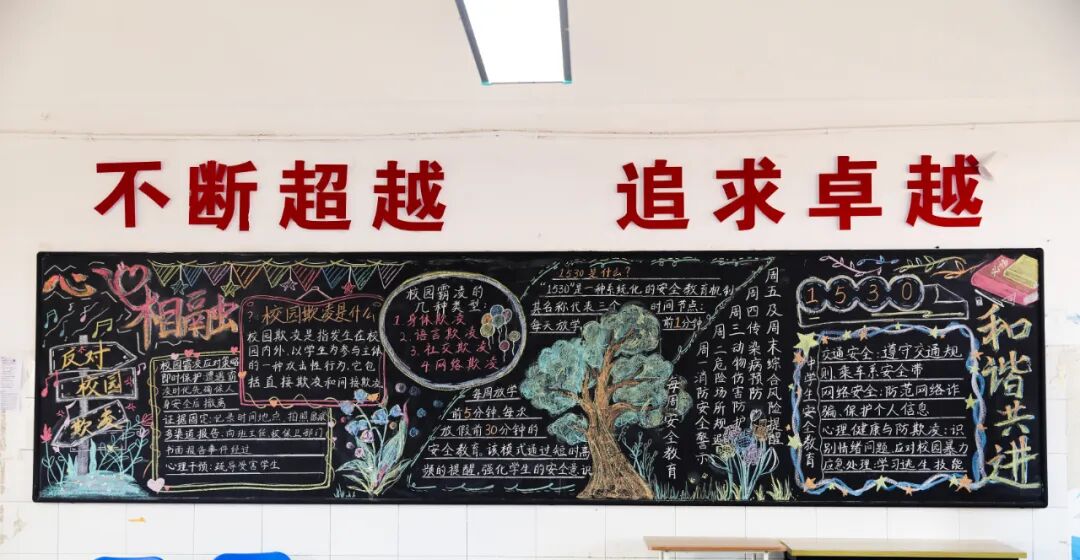 不断超越
追求卓越
心
相融
反对
校园
欺凌
校园霸凌应对策略
即时保护
身安全后撤离
证据固定:记录时间地点、拍照
多渠道报告:向班主任、校保卫部门
书面报告事件经过
心理干预:疏导受害学生
校园欺凌是什么?
校园欺凌是指发生在校
园内外、以学生为参与主体
的一种攻击性行为,它包
括直接欺凌和间接欺凌
校园霸凌的
几种类型:
1.身体欺凌
2.语言欺凌
3.社交欺凌
4.网络欺凌
1530是什么?
"1530"是一种系统化的安全教育机制
其名称代表三个 时间节点:
每天放学 前1分钟、
每周放学
前5分钟、每次
放假前30分钟的
安全教育,该模式通过短时高
频的提醒,强化学生的安全意识
每周安全教育
周一消防安全警示
周二危险场所规避
周三动物伤害防护
周四传染病预防
周五及周末综合风险提醒
1530
中学生安全教育
交通安全:遵守交通规
则、乘车系安全带
网络安全:防范网络诈
骗、保护个人信息
心理健康与防欺凌:识
别情绪问题,反对校园暴力
应急处理:学习逃生技能
和谐共进